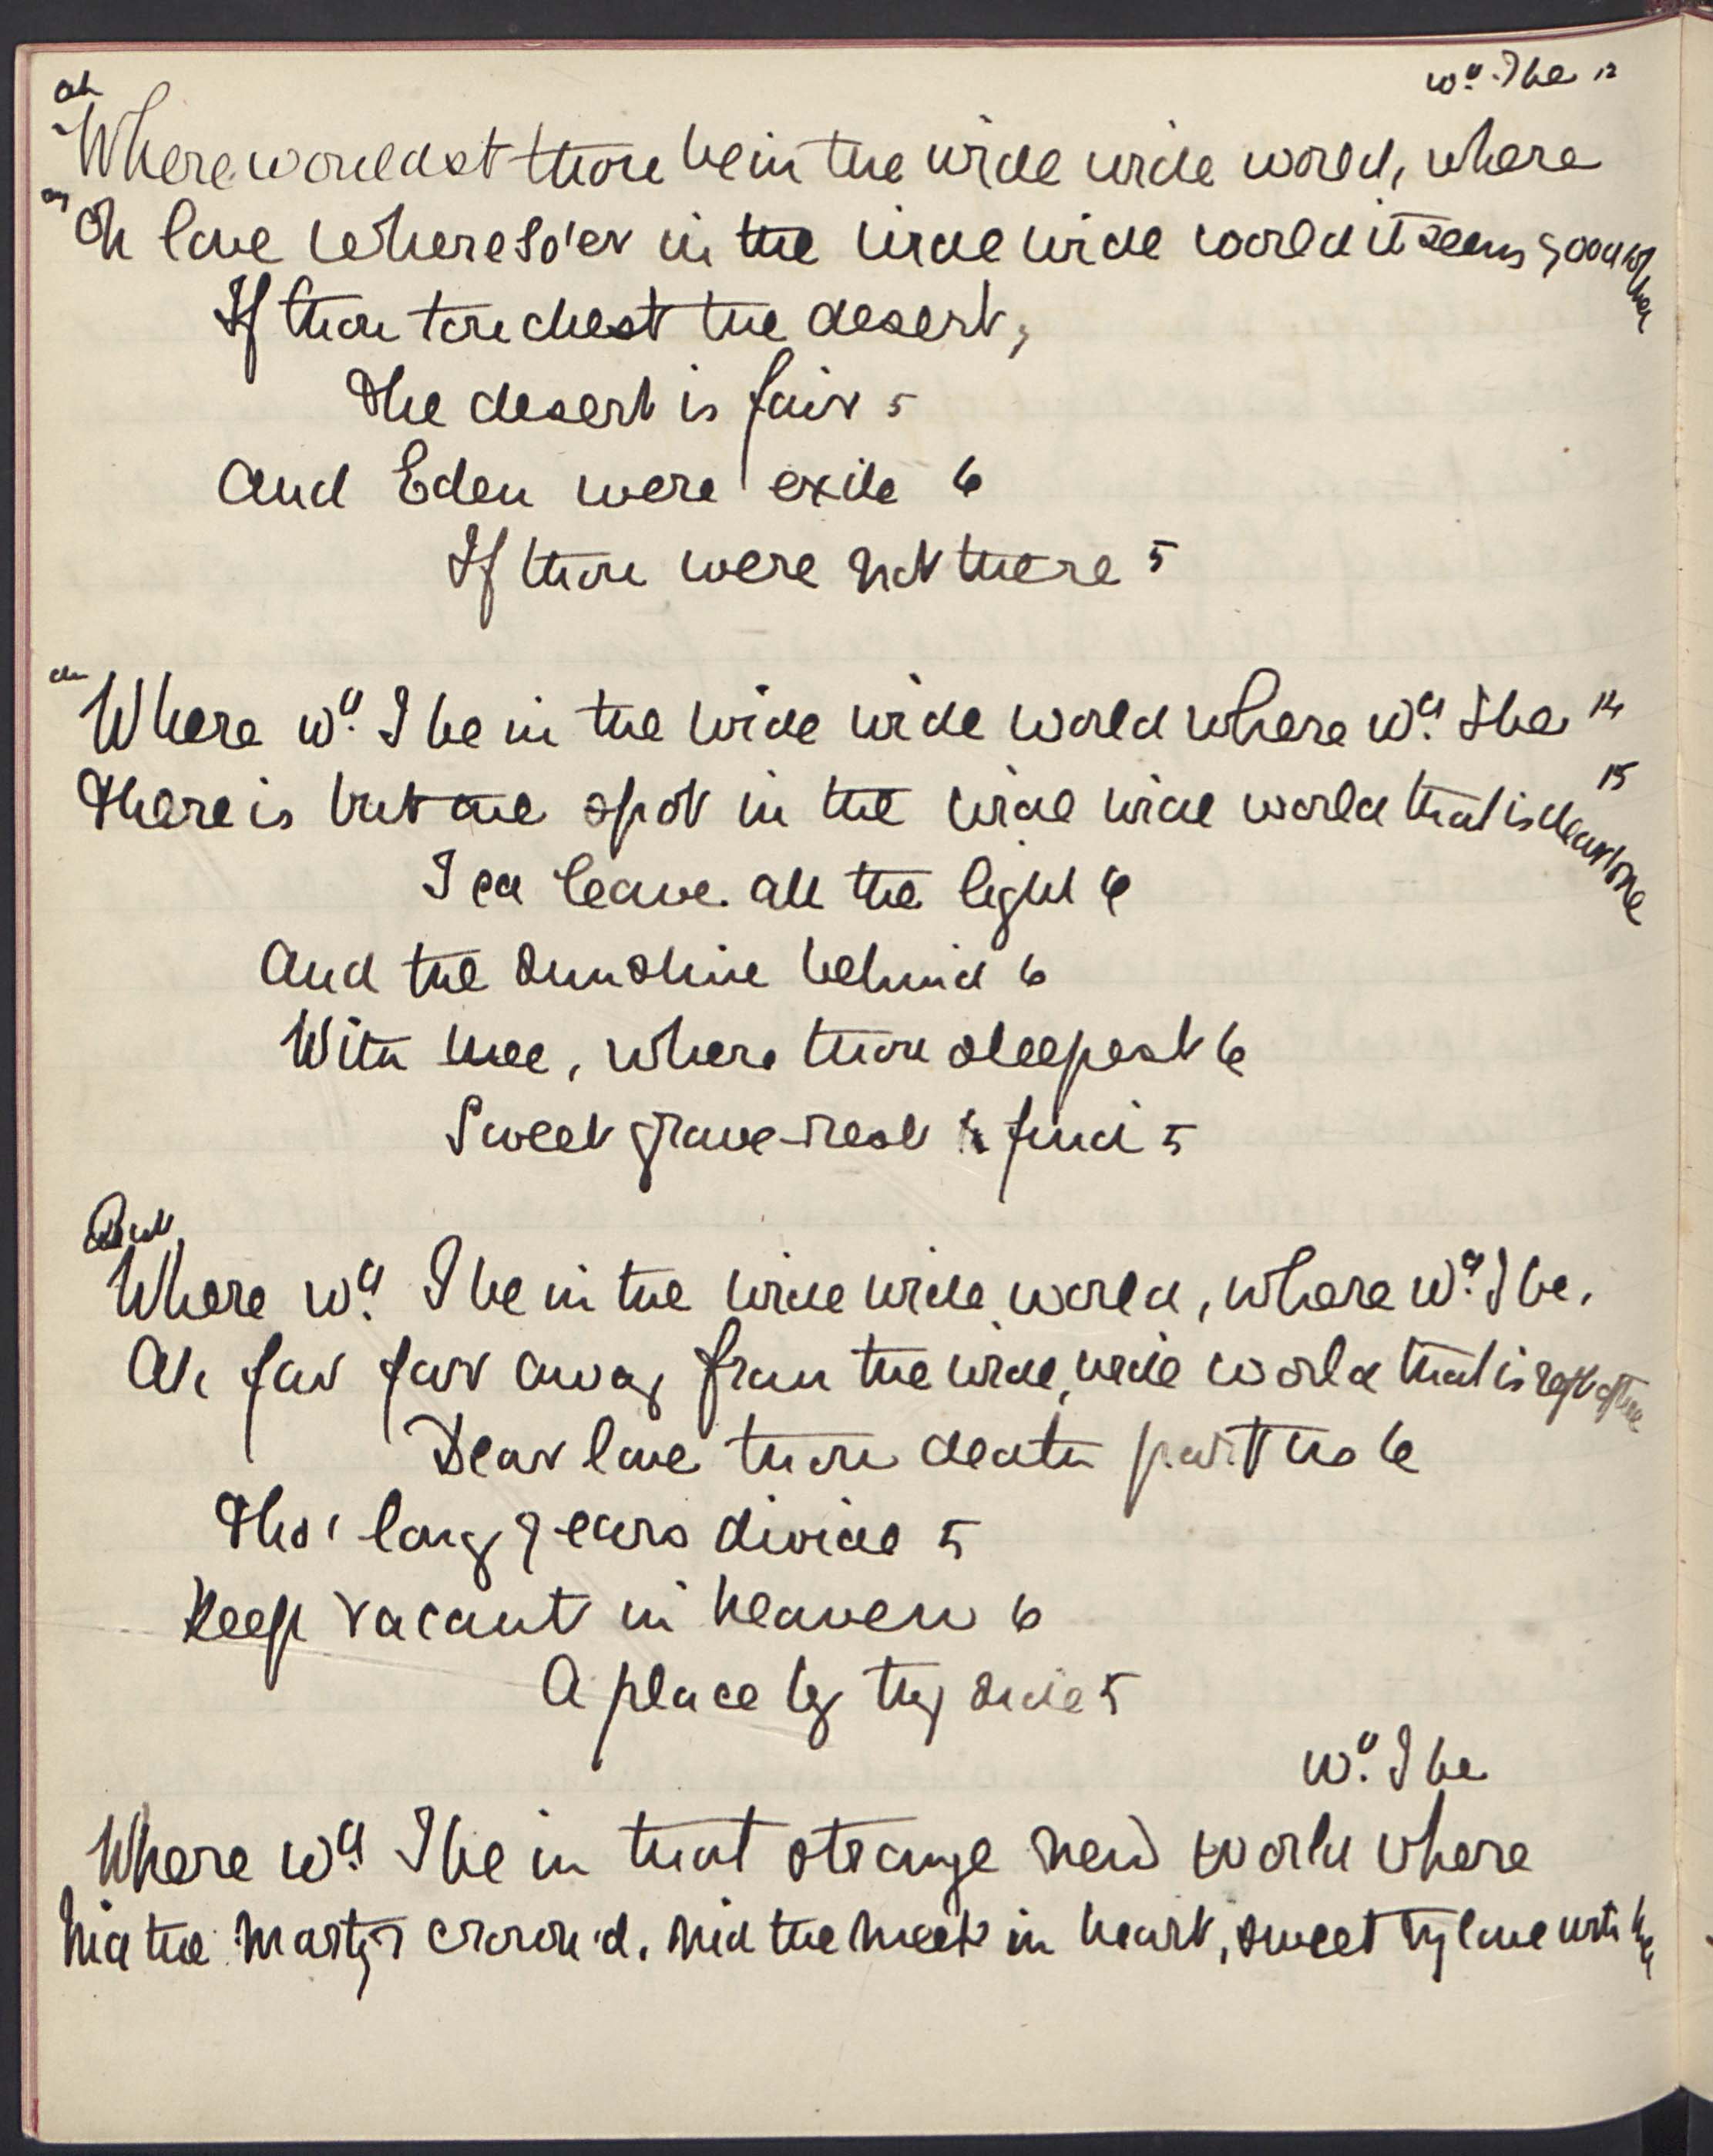 wd. I be 12
Oh
Where wouldst thou be in the wide wide world, where
Oh love whereso'er in the wide wide world it seems good
If thou touchest the desert,
The desert is fair 5
And Eden were exile 6
If thou were not there 5
Where wd. I be in the wide wide world where wd. I be 14
There is but one spot in the wide wide world that is dear to me 15
I cd leave all the light 6
And the sunshine behind 6
With thee, where thou sleepest 6
Sweet grave-rest find 5
But
Where wd. I be in the wide wide world, where wd. I be.
Ah far far away from the wide, wide world that is reft of thee
Dear love thou death part us 6
Tho' long years divide 5
Keep vacant in heaven 6
A place by thy side 5
wd. I be
Where wd. I be in that strange new world where
Mid the martyr crown'd, mid the meek in heart, sweet my love with